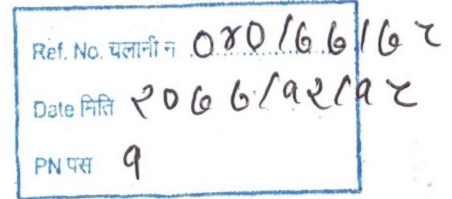 Ref. No. चलानी न ०४०/७७/७८
Date मिति २०७७/१२/१८
PN पस १